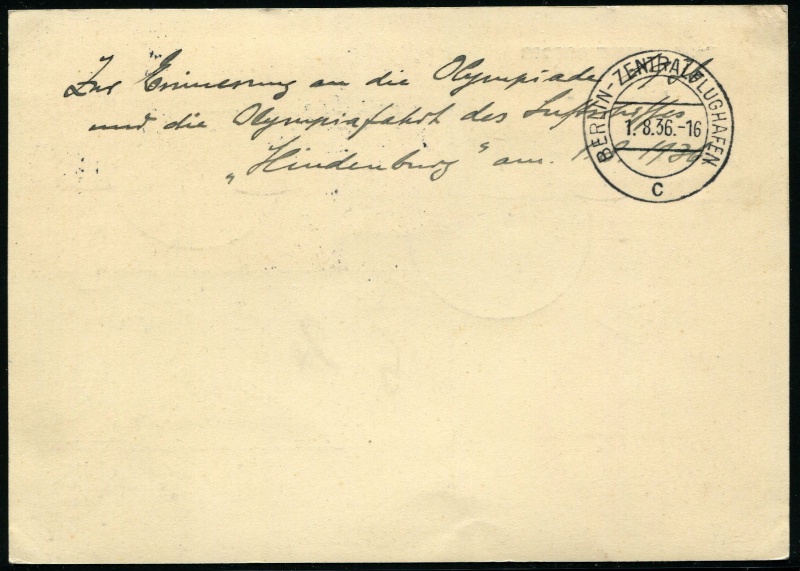 Zur Erinnerung an die Olympiade
und die Olympiafahrt des Luftschiffes
„Hindenburg" am 1.8.1936
BERLIN-ZENTRALFLUGHAFEN
1.8.36.-16
c